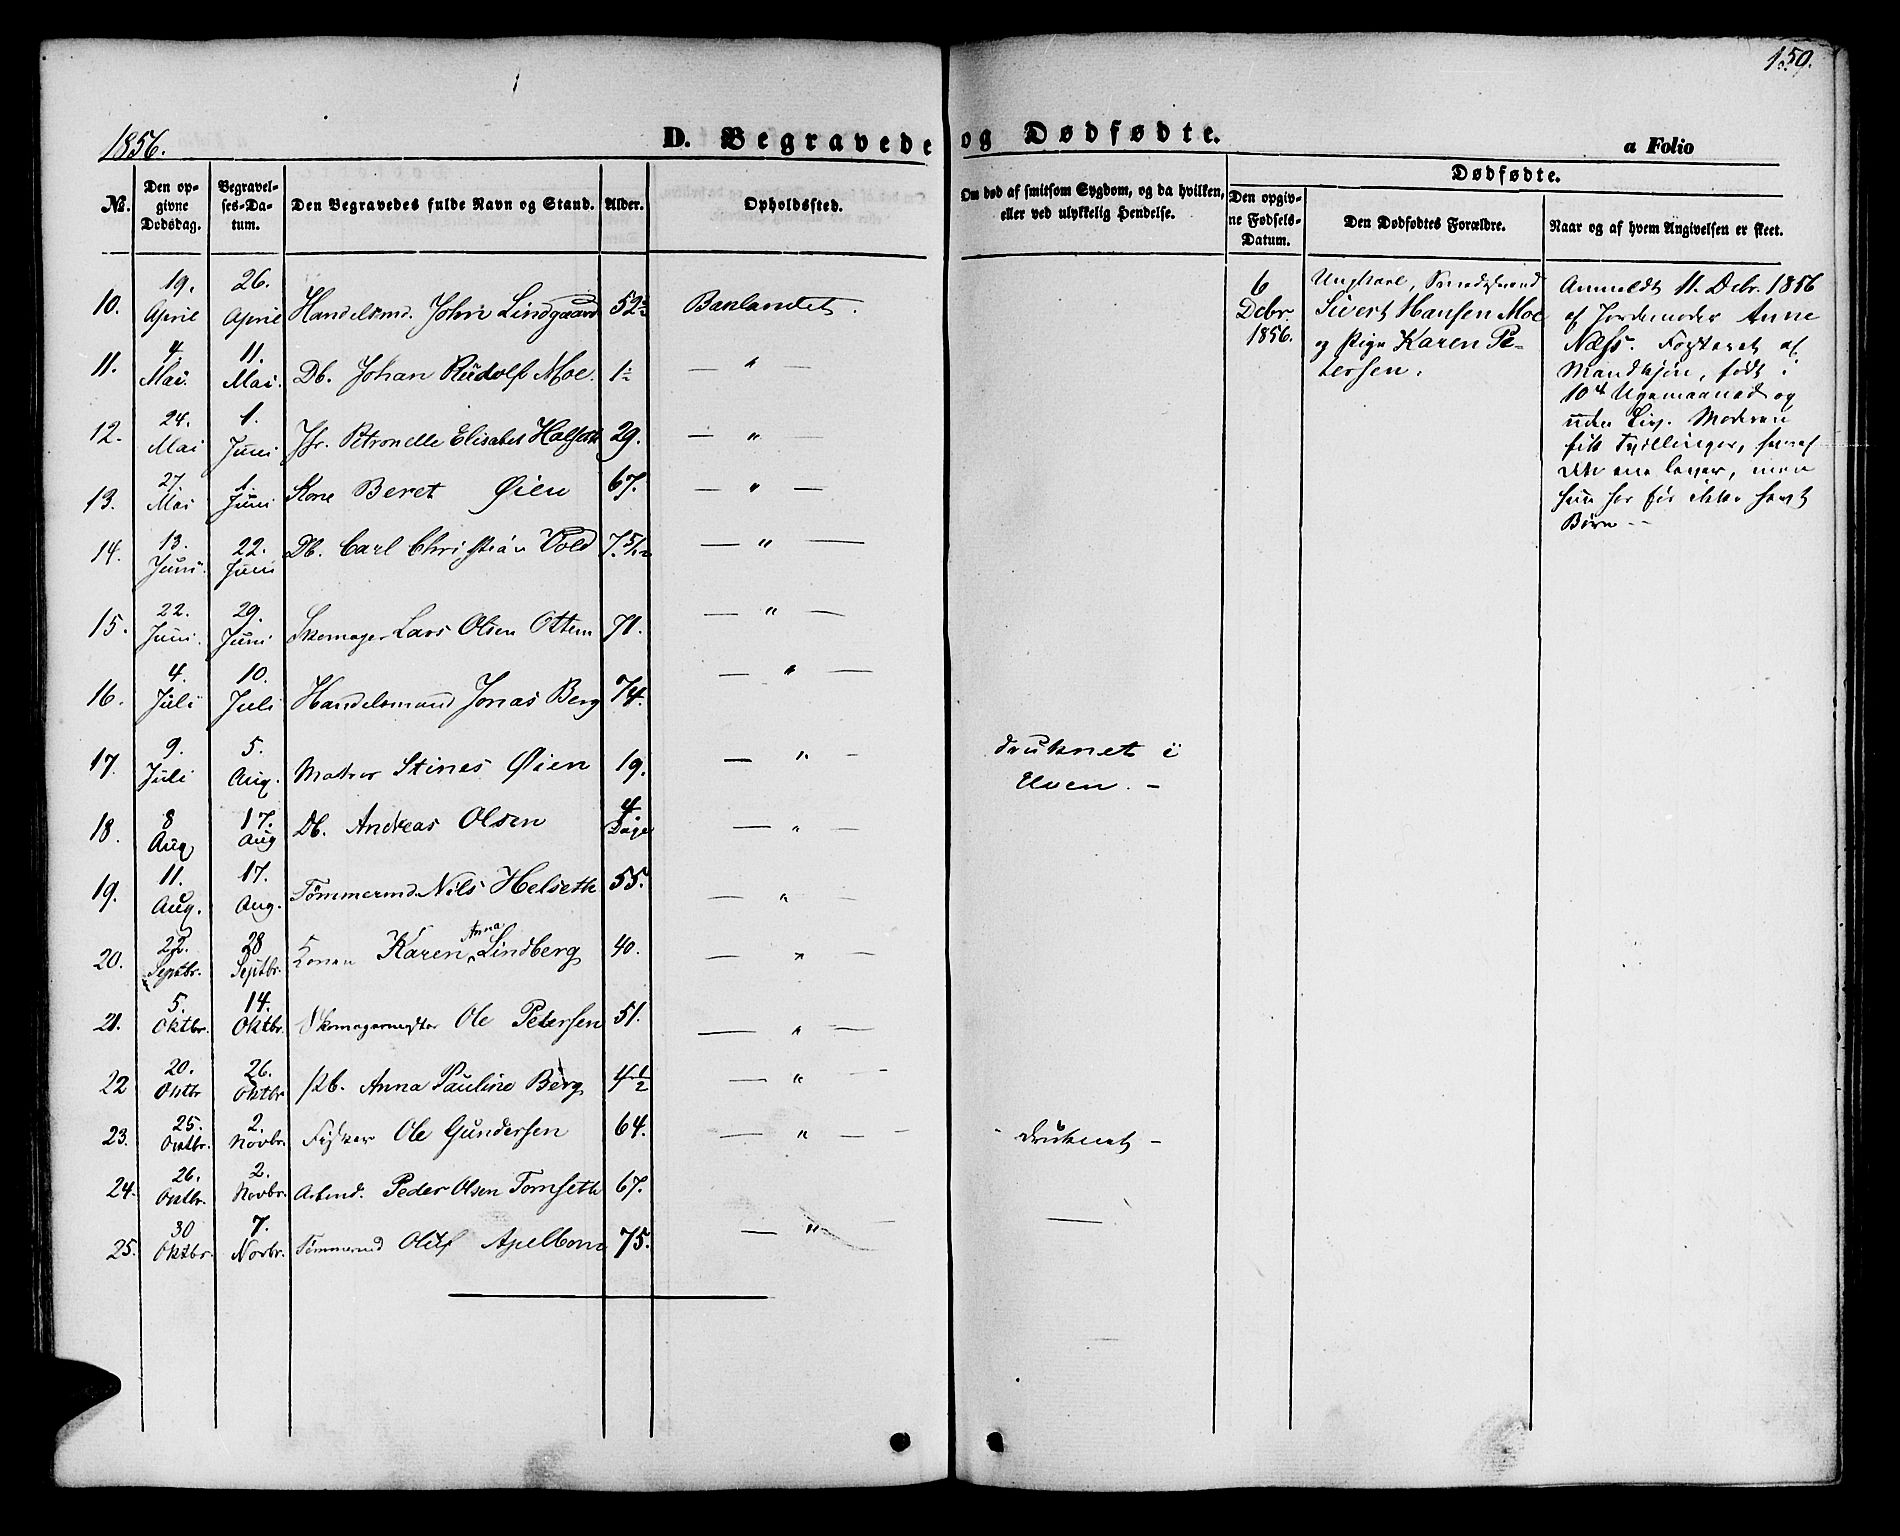 159.
1856.
D. Begravede og Dødfødte.
a Folio
No.
Den opgivne Dødsdag.
Begravelses-Datum.
Den Begravedes fulde Navn og Stand.
Alder.
Opholdssted.
Om død af smitsom Sygdom, og da hvilken, eller ved ulykkelig Hendelse.
Dødfødte.
Den opgivne Fødsels-Datum.
Den Dødfødtes Forældre.
Naar og af hvem Angivelsen er skeet.
10. 19. April 26. April Handelsmd. John Lindgaard 52 Baklandet.
11. 4. Mai. 11. Mai. Db. Johan Rudolf Moe. 1 — " —
12. 24. Mai 1. Juni Jfr. Petronelle Elisabet 29. — " —
13. 27. Mai 1. Juni Kone Beret Øien 67. — " —
14. 13. Juni. 22. Juni Db. Carl Christian Vold 7. 5/12 — " —
15. 22. Juni. 29. Juni Skomager Lars Olsen Ottem 71. — " —
16. 4. Juli 10. Juli Handelsmand Jonas Berg 74. — " —
17. 9. Juli 5. Aug. Matros Stines Øien 19. — " — druknet i Elven. –
18. 8 Aug 17. Aug Db. Andreas Olsen 4 Dage — " —
19. 11. Aug. 17. Aug. Tømmermd. Nils Helseth 55. — " —
20. 22. Septbr. 28 Septbr. Konen Karen Anna Lindberg 40. — " —
21. 5. Oktbr. 14. Oktbr. Skomagermester Ole Petersen 51. — " —
22 20. Oktbr 26. Oktbr Pb. Anna Pauline Berg 4 1/2 — " —
23. 25. Oktbr. 2. Novbr. Fisker Ole Gundersen 64. — " — – druknet –
24. 26. Oktbr. 2. Novbr. Arbmd. Peder Olsen Tomseth 67.
25. 30 Oktbr. 7. Novbr. Tømmermd Oluf Apelbom 75. — " —
6 Debr 1856.
Ungkarl,
Sivert Hansen Moe
og Pige Karen Pe-
tersen.
Anmeldt 11. Debr. 1856
af Jordemoder Anne
Næss. Fosteret af
Mandkjøn, født i
10de Ugemaaned og
uden Liv. Moderen
fik Tvillinger, hvoraf
det ene lever, men
hun har før ikke havt
Børn –